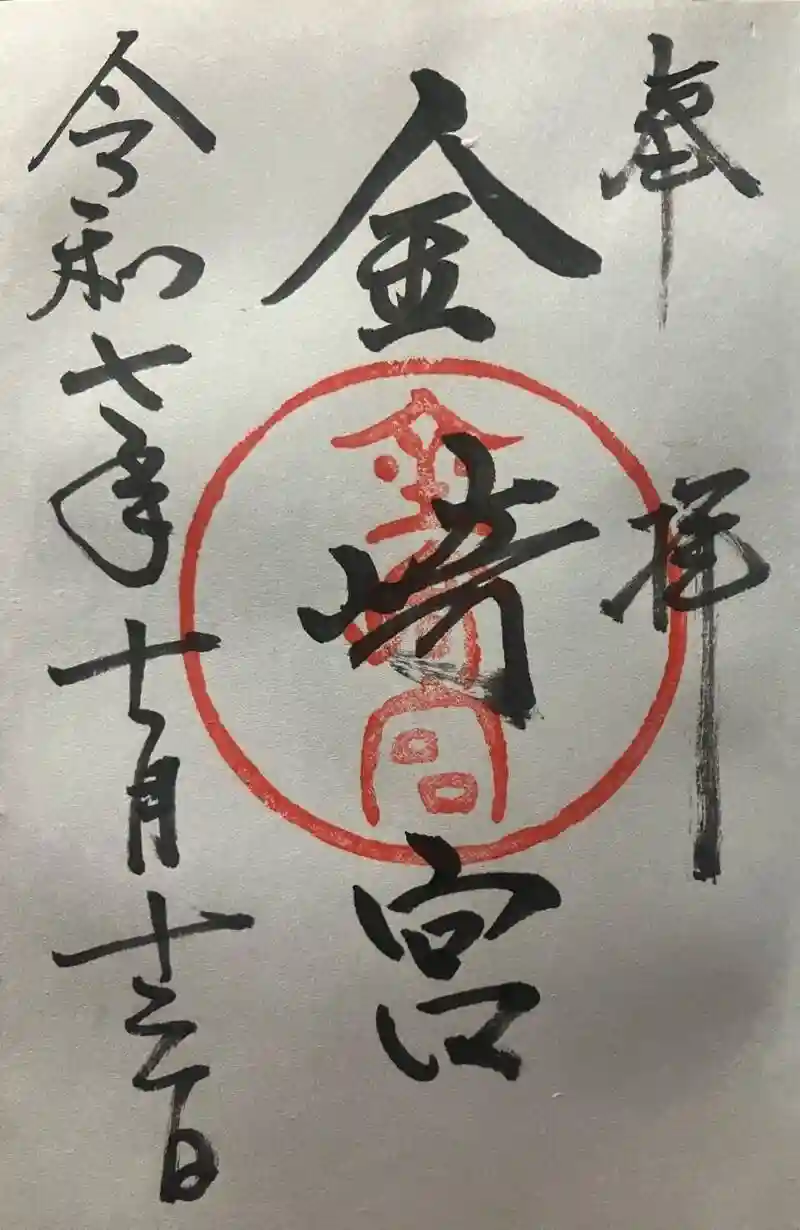 奉拝
金崎宮
金崎宮
令和七年十月十三日